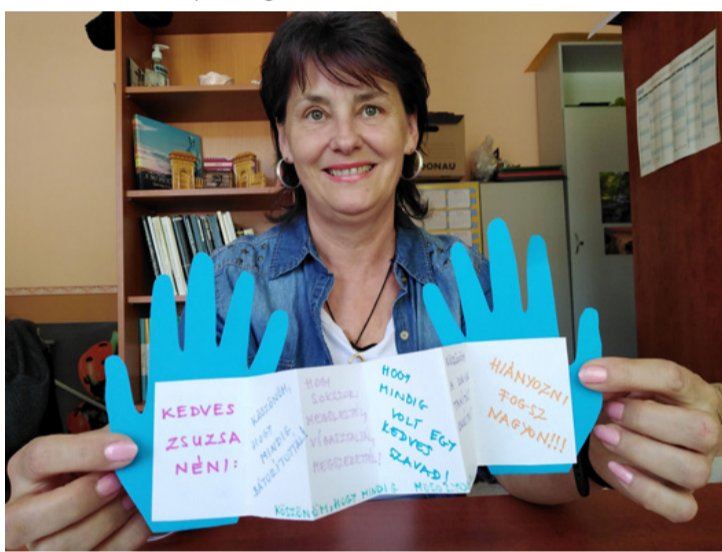 KEDVES
ZSUZSA
NÉNI:
KÖSZÖNÖM,
HOGY
MINDIG
BÁTORÍTOTTÁL!
HOGY
SOKSZOR
MEGÖLELTÉL,
VÍGASZTALTÁL,
HOGY
MINDIG
VOLT EGY
KEDVES
SZAVAD!
HIÁNYOZNI
FOGSZ
NAGYON!!!
KÖSZÖNÖM, HOGY MINDIG
DONAU